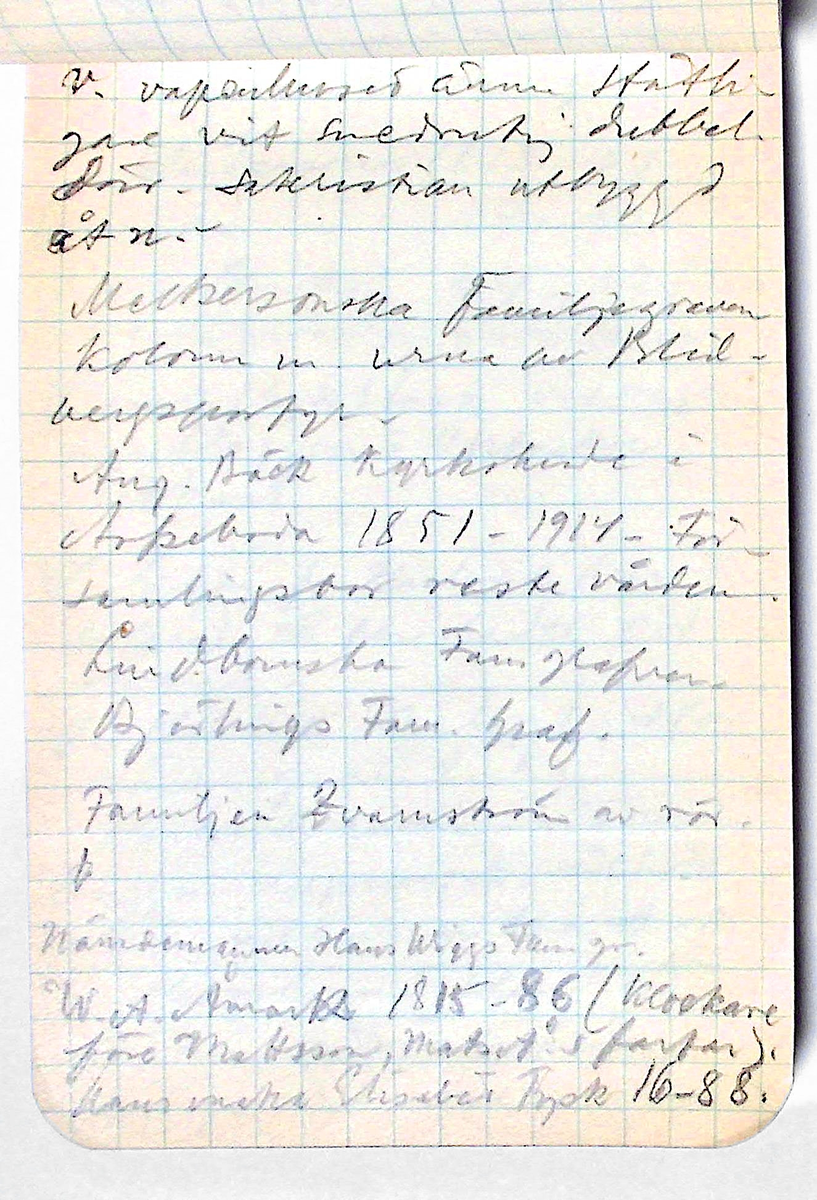 v. vapenhuset ännu ståtli-
gare vit snedrutig dubbel-
dörr. Sakristian utbyggd
åt n.
Melkersonska Familjegraven
kolonn m. urna av Blid-
bergsporfyr.
Aug. Bäck Kyrkoherde i
1851 - 1914 - För-
samlingsbor reste vården.
Lindbomska Fam grafven.
Björlings Fam. graf.
Familjen Zvarnström av rör.
Nämdemannen Hans Wiggs Fam gr.
W. A. Amark 1815-86 (Klockare
före Mattsson, farfar).
Hans maka Elisabet Fysk 16-88.